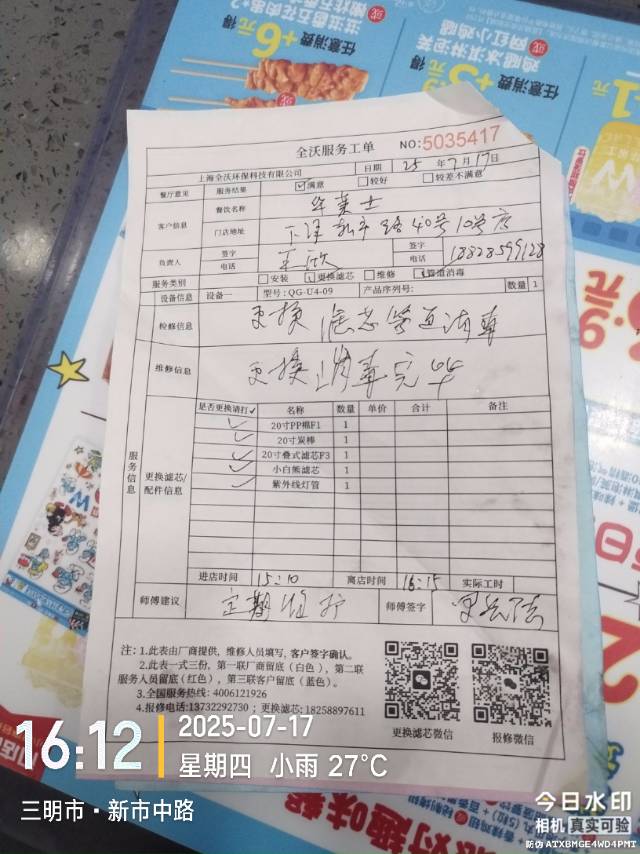 任意消费+6元得
任意消费
鸡腿冰淇淋泡芙
或 两红小鸡腿
全沃服务工单
NO:5035417
上海全沃环保科技有限公司
日期 25 年 7 月 17 日
餐厅意见 服务结果 ☑满意 □较好 □较差不满意
客户信息 餐饮名称 华莱士
门店地址 下洋新市路40号12号店
负责人 签字 签字
电话 电话 18828599128
服务类别 □安装 ☑更换滤芯 □维修 ☑管道消毒
设备信息 设备一 型号:QG-U4-09 产品序列号: 数量 1
检修信息 更换滤芯管道消毒
维修信息 更换消毒完毕
服务信息 更换滤芯/配件信息
是否更换请打✓ 名称 数量 单价 合计 备注
✓ 20寸PP棉F1 1
✓ 20寸炭棒 1
✓ 20寸叠式滤芯F3 1
✓ 小白熊滤芯 1
✓ 紫外线灯管 1
进店时间 15:10 离店时间 16:15 实际工时
师傅建议 定期维护 师傅签字
注：1.此表由厂商提供，维修人员填写, 客户签字确认。
2.此表一式三份，第一联厂商留底（白色），第二联
服务人员留底（红色），第三联客户留底（蓝色）。
3.全国服务热线: 4006121926
4.报修电话:13732292730；更换滤芯: 18258897611
更换滤芯微信 报修微信
16:12
2025-07-17
星期四 小雨 27°C
三明市·新市中路
今日水印
相机 真实可验
防伪 ATXBMGE4WD4PMI